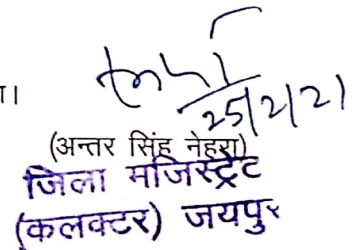 25/2/21
(अन्तर सिंह नेहरा)
जिला मजिस्ट्रेट
(कलक्टर) जयपुर